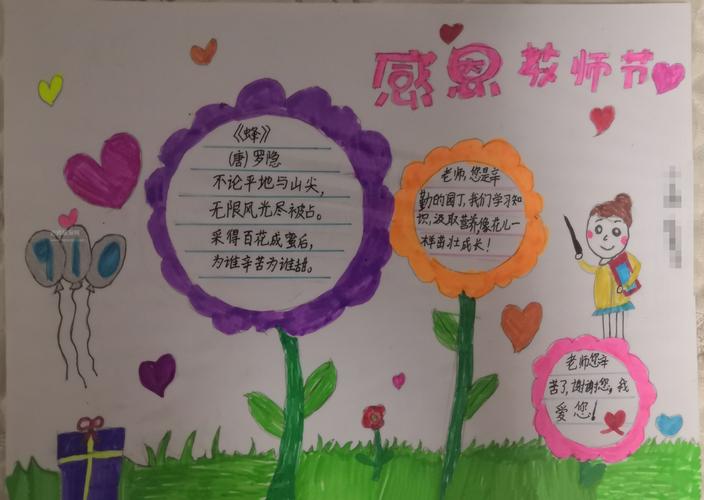 感恩教师节
《蜂》
(唐)罗隐
不论平地与山尖，
无限风光尽被占。
采得百花成蜜后，
为谁辛苦为谁甜。
老师，您是辛
勤的园丁，我们学习知
识，汲取营养，像花儿一
样茁壮成长！
910
老师您辛
苦了，谢谢您，我
爱您！